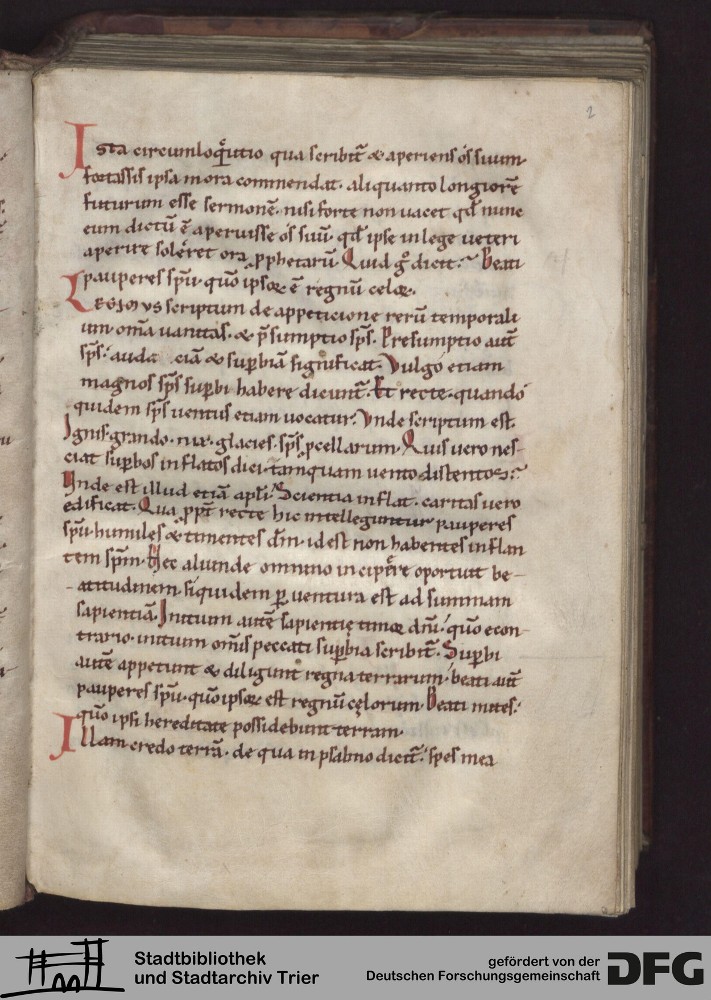 2
Ista circumloq̃utio qua scribit̃ & aperiens ós suum
fortassis ipsa mora commendat. aliquanto longiorẽ
futurum esse sermonẽ. nisi forte non uacet qđ nunc
eum dictũ ẽ aperuisse ós suũ. qđ ipse in lege ueteri
aperire soleret ora ꝓphetarũ. Quid g̊ dicit? Beati
pauperes sp̃u. quo ipsoꝝ ẽ regnũ celoꝝ.
Legimus scriptum de appeticione rerũ temporali
um. om̃a uanitas. & p̃sumptio sp̃s. Presumptio aut̃
sp̃s. auda ciã & suꝑbiã significat. Vulgo etiam
magnos sp̃s suꝑbi habere dicunt̃. Et recte. quando
quidem sp̃s uentus etiam uocatur. Vnde scriptum est.
Ignis. grando. nix. glacies. sp̃s ꝓcellarum. Quis uero nes-
ciat suꝑbos inflatos dici. tamquam uento distentos?
Vnde est illud etiã apłi. Scientia inflat. caritas uero
edificat. Qua ꝓpt̃ recte hic intelleguntur pauperes
sp̃u. humiles & timentes dm̃. id est non habentes inflan
tem sp̃m. Nec aliunde omnino incip̃re oportuit be-
-atitudinem. siquidem ꝑuentura est ad summam
sapientiã. Initium autẽ sapientię timoꝝ dñi. quo econ-
trario. initium om̃is peccati suꝑbia scribit̃. Suꝑbi
autẽ appetunt & diligunt regna terrarum. beati aut̃
pauperes sp̃u. quo ipsoꝝ est regnũ cęlorum. Beati mites.
quo ipsi hereditate possidebunt terram.
Illam credo terrã. de qua in psalmo dicit̃. Spes mea
Stadtbibliothek
und Stadtarchiv Trier
gefördert von der
Deutschen Forschungsgemeinschaft
DFG